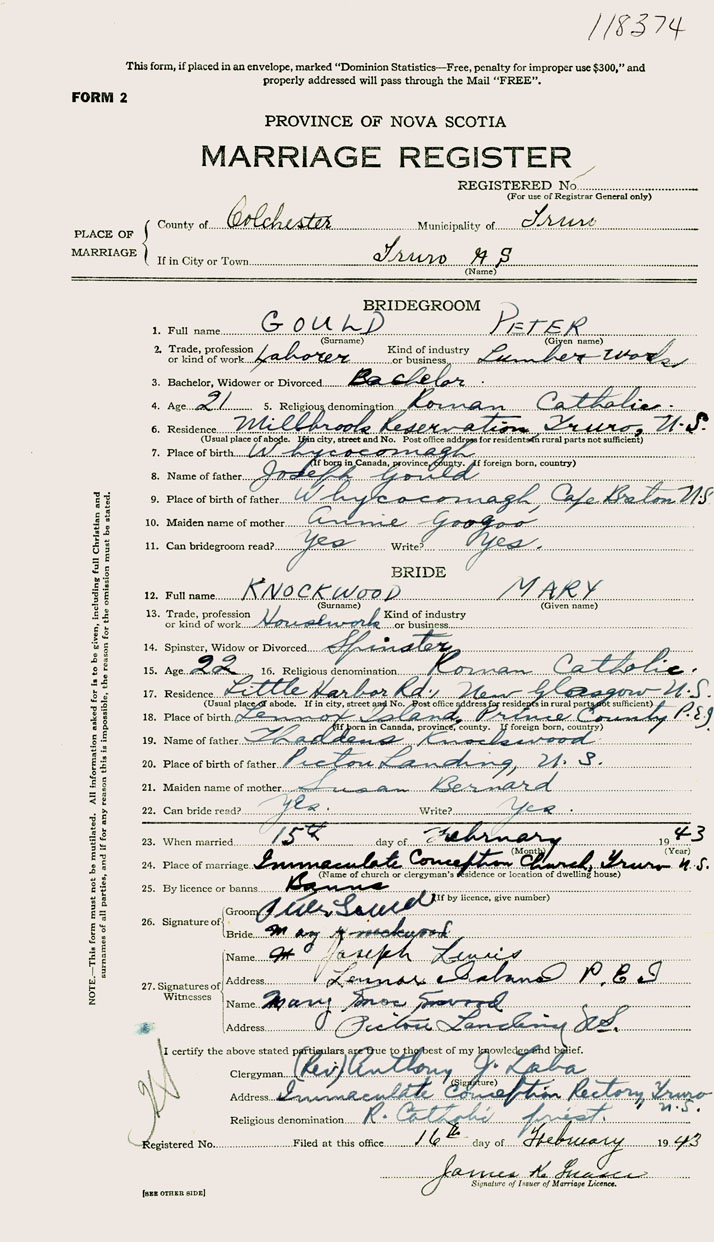 118374
This form, if placed in an envelope, marked "Dominion Statistics—Free, penalty for improper use $300," and
properly addressed will pass through the Mail "FREE".
FORM 2
PROVINCE OF NOVA SCOTIA
MARRIAGE REGISTER
REGISTERED No.
(For use of Registrar General only)
PLACE OF MARRIAGE
County of Colchester Municipality of Truro
If in City or Town Truro N S
(Name)
BRIDEGROOM
1. Full name GOULD PETER
(Surname) (Given name)
2. Trade, profession or kind of work Laborer Kind of industry or business Lumber Works
3. Bachelor, Widower or Divorced Bachelor.
4. Age 21 5. Religious denomination Roman Catholic.
6. Residence Millbrook Reservation, Truro, N.S.
(Usual place of abode. If in city, street and No. Post office address for residents in rural parts not sufficient)
7. Place of birth Whycocomagh
(If born in Canada, province, county. If foreign born, country)
8. Name of father Joseph Gould
9. Place of birth of father Whycocomagh, Cape Breton N.S
10. Maiden name of mother Annie Googoo
11. Can bridegroom read? Yes Write? Yes.
BRIDE
12. Full name KNOCKWOOD MARY
(Surname) (Given name)
13. Trade, profession or kind of work Housework Kind of industry or business
14. Spinster, Widow or Divorced Spinster
15. Age 22 16. Religious denomination Roman Catholic.
17. Residence Little Harbor Rd., New Glasgow N.S.
(Usual place of abode. If in city, street and No. Post office address for residents in rural parts not sufficient)
18. Place of birth Lennox Island, Prince County P.E.I
(If born in Canada, province, county. If foreign born, country)
19. Name of father Thaddeus Knockwood
20. Place of birth of father Pictou Landing, N.S.
21. Maiden name of mother Susan Bernard
22. Can bride read? Yes. Write? Yes.
23. When married 15th day of February 1943
(Month) (Year)
24. Place of marriage Immaculate Conception Church, Truro N.S.
(Name of church or clergyman's residence or location of dwelling house)
25. By licence or banns Banns
(If by licence, give number)
26. Signature of
Groom Peter Gould
Bride Mary Knockwood
27. Signatures of Witnesses
Name Joseph Lewis
Address Lennox Island P.E.I
Name Mary
Address Pictou Landing N.S.
I certify the above stated particulars are true to the best of my knowledge and belief.
Clergyman (Rev) Anthony J. Laba
(Signature)
Address Immaculate Conception Rectory, Truro N.S.
Religious denomination R. Catholic priest.
Registered No. Filed at this office 16th day of February 1943
James K.
Signature of Issuer of Marriage Licence.
[SEE OTHER SIDE]
NOTE.—This form must not be mutilated. All information asked for is to be given, including full Christian and
surnames of all parties, and if for any reason this is impossible, the reason for the omission must be stated.